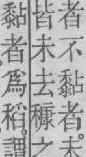 者不黏者。
皆未去穅之
黏者爲稻。謂